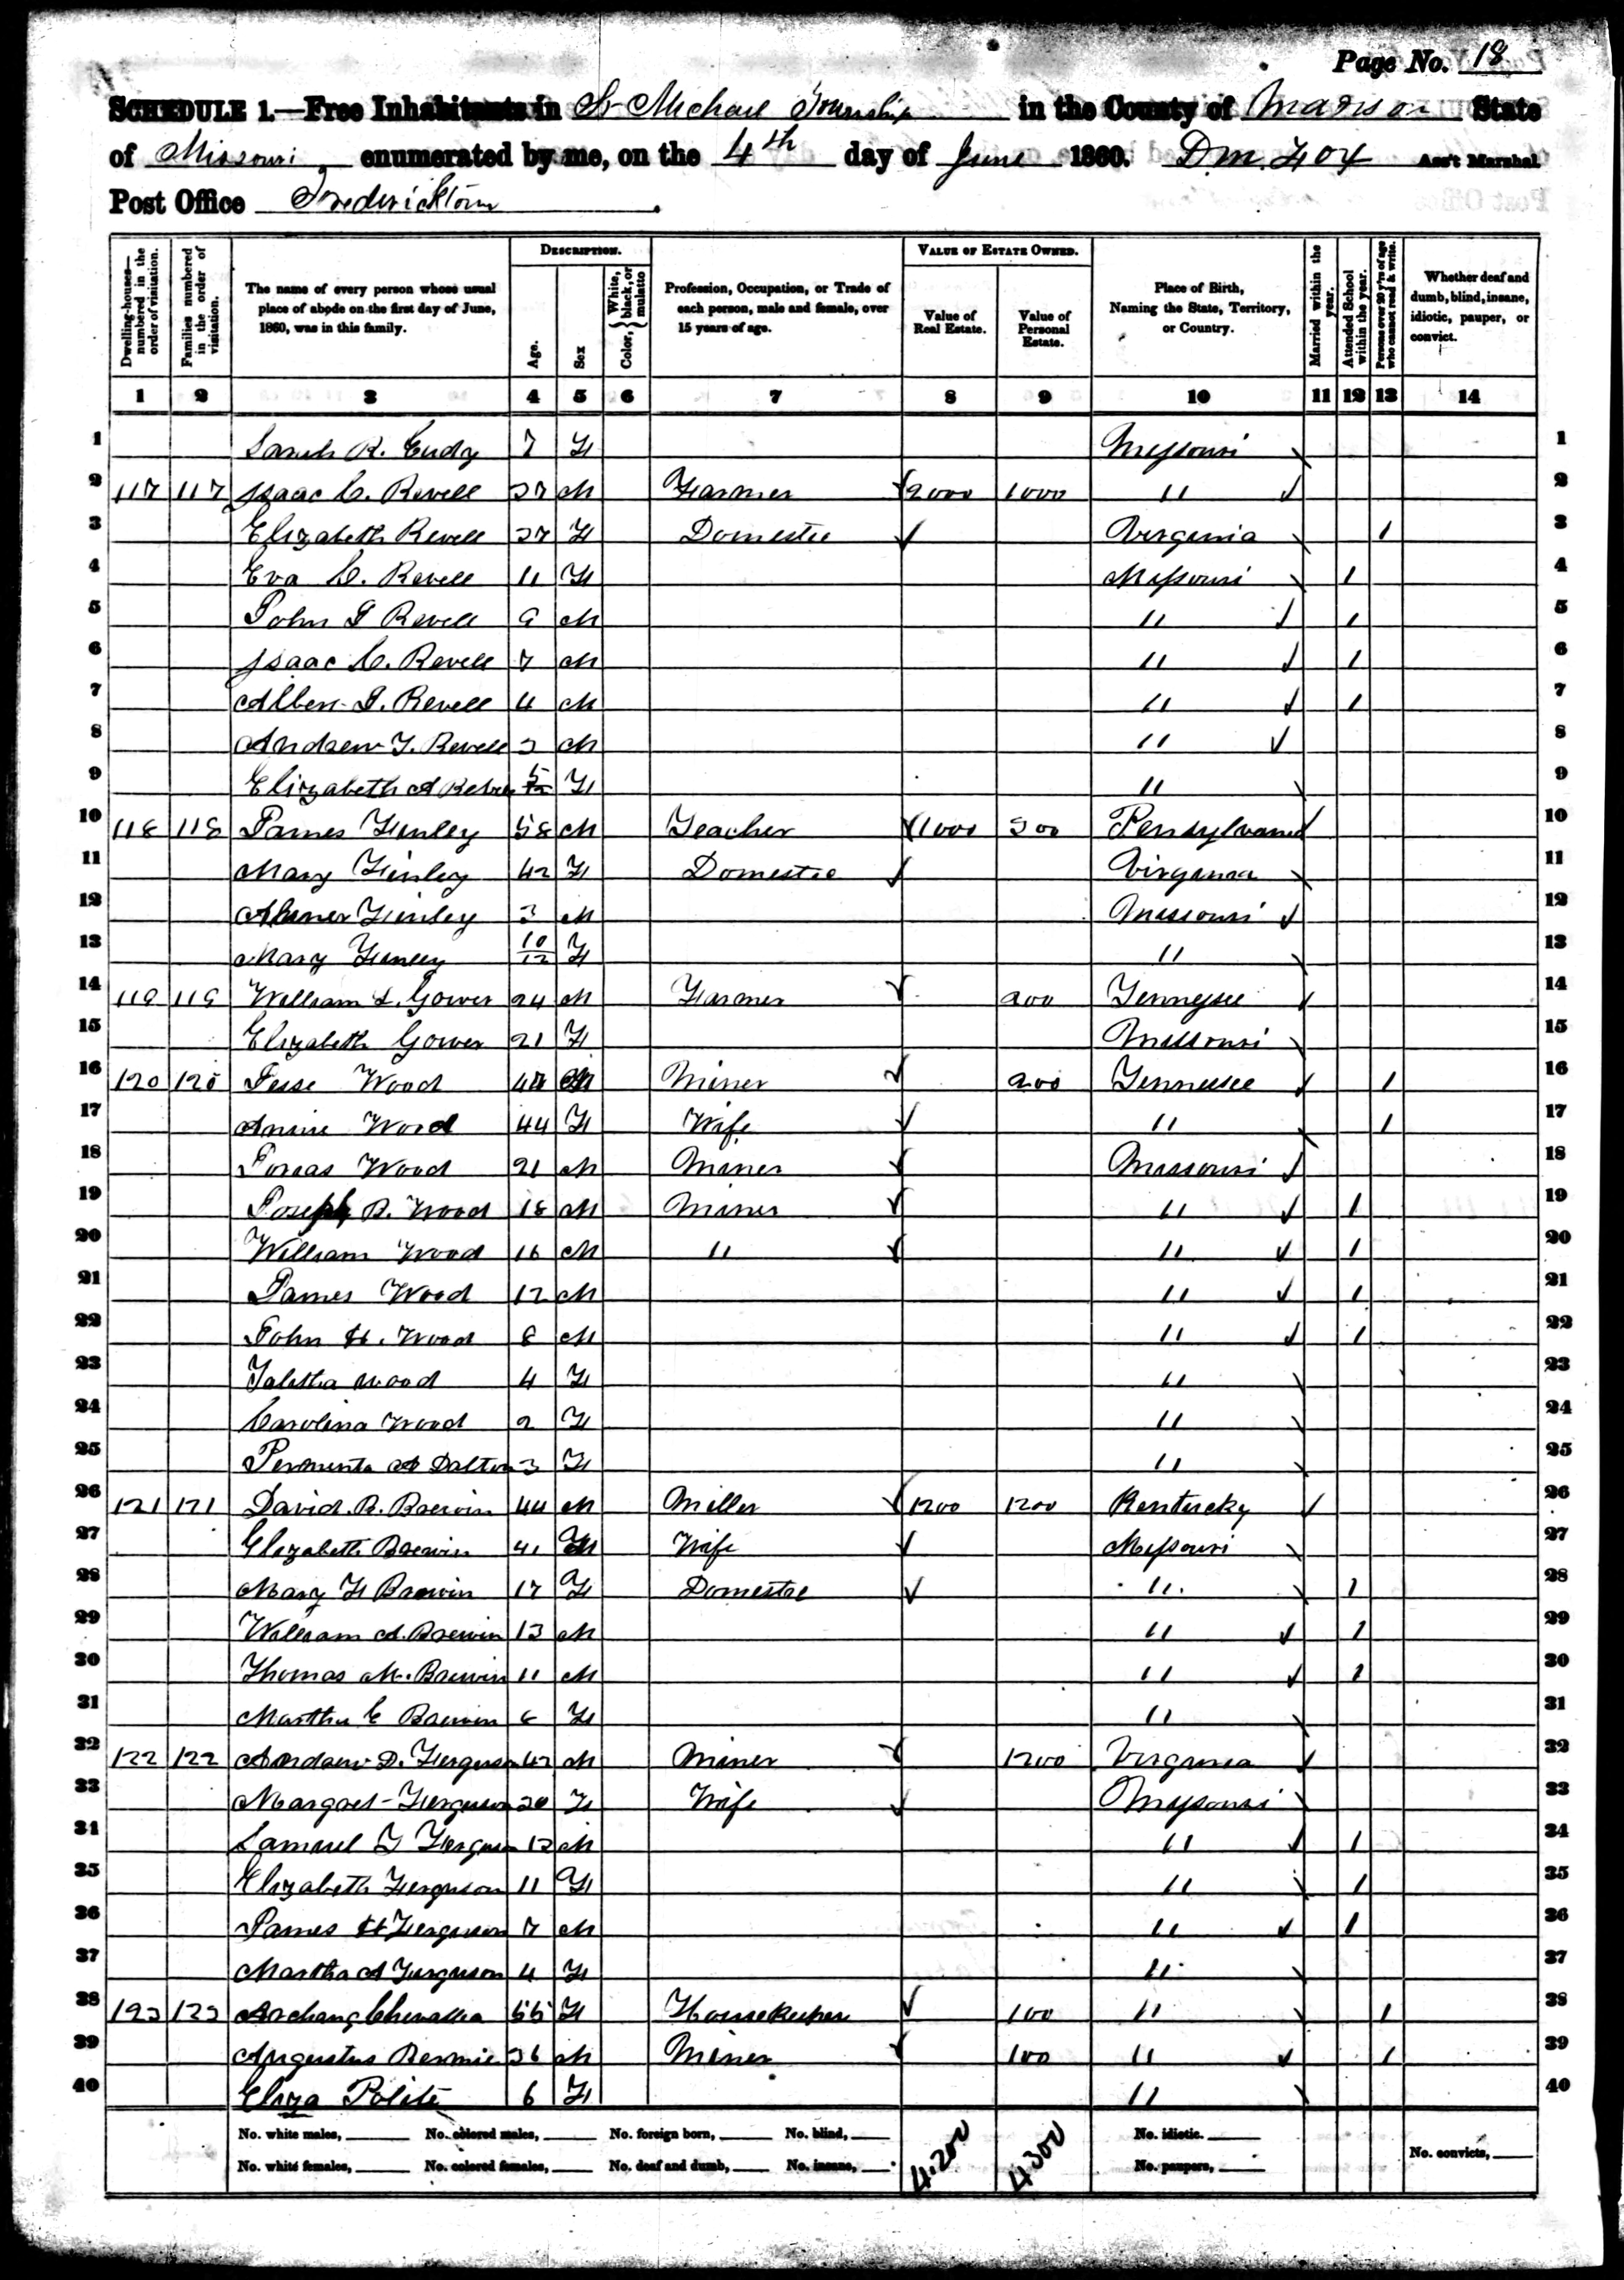 Page No. 18
SCHEDULE 1.—Free Inhabitants in St Michael Township in the County of Madison State
of Missouri enumerated by me, on the 4th day of June 1860. D.M. Fox Ass't Marshal.
Post Office Fredericktown
Dwelling-houses—numbered in the order of visitation.
Families numbered in the order of visitation.
The name of every person whose usual place of abode on the first day of June, 1860, was in this family.
DESCRIPTION.
Age.
Sex
Color, White, black, or mulatto
Profession, Occupation, or Trade of each person, male and female, over 15 years of age.
VALUE OF ESTATE OWNED.
Value of Real Estate.
Value of Personal Estate.
Place of Birth, Naming the State, Territory, or Country.
Married within the year.
Attended School within the year.
Persons over 20 y'rs of age who cannot read & write.
Whether deaf and dumb, blind, insane, idiotic, pauper, or convict.
1 2 3 4 5 6 7 8 9 10 11 12 13 14
1 Sarah R. 7 F Missouri 1
2 117 117 Isaac C. Revell 37 M Farmer 2000 1000 " 2
3 Elizabeth Revell 37 F Domestic Virginia 1 3
4 Eva C. Revell 11 F Missouri 1 4
5 John Revell 9 M " 1 5
6 Isaac C. Revell 7 M " 1 6
7 Albert Revell 4 M " 1 7
8 Andrew Revell M " 8
9 Elizabeth A Revell 5/12 F " 9
10 118 118 James Finley 58 M Teacher 1000 Pensylvania 10
11 Mary Finley 42 F Domestic Virginia 11
12 Abner Finley 3 M Missouri 12
13 Mary Finley 10/12 F " 13
14 119 119 William L. Gower 24 M Farmer 200 Tennessee 14
15 Elizabeth Gower 21 F Missouri 15
16 120 120 Jesse Wood M Miner 200 Tennessee 1 16
17 Wood 44 F Wife " 1 17
18 Wood 21 M Miner Missouri 18
19 Joseph B. Wood 18 M Miner " 1 19
20 William Wood 16 M " " 1 20
21 James Wood 12 M " 1 21
22 John H. Wood 8 M " 1 22
23 Talitha Wood 4 F " 23
24 Carolina Wood 2 F " 24
25 A Dalton 3 F " 25
26 121 121 David B. 44 M Miller 1200 1200 Kentucky 26
27 Elizabeth 41 F Wife Missouri 27
28 Mary F 17 F Domestic " 1 28
29 William A. 13 M " 1 29
30 Thomas M. 11 M " 1 30
31 Martha E F " 31
32 122 122 Andrew D. Ferguson 42 M Miner 1200 Virginia 32
33 Margret Ferguson 30 F Wife Missouri 33
34 Samuel Ferguson 13 M " 1 34
35 Elizabeth Ferguson 11 F " 1 35
36 James H Ferguson 7 M " 1 36
37 Martha A Ferguson 4 F " 37
38 123 123 Archang 55 F Housekeeper 100 " 1 38
39 Augustus 36 M Miner 100 " 1 39
40 Eliza Polite 6 F " 40
No. white males, No. colored males, No. foreign born, No. blind, 4.200 4.300 No. idiotic. No. convicts,
No. white females, No. colored females, No. deaf and dumb, No. insane, No. paupers,